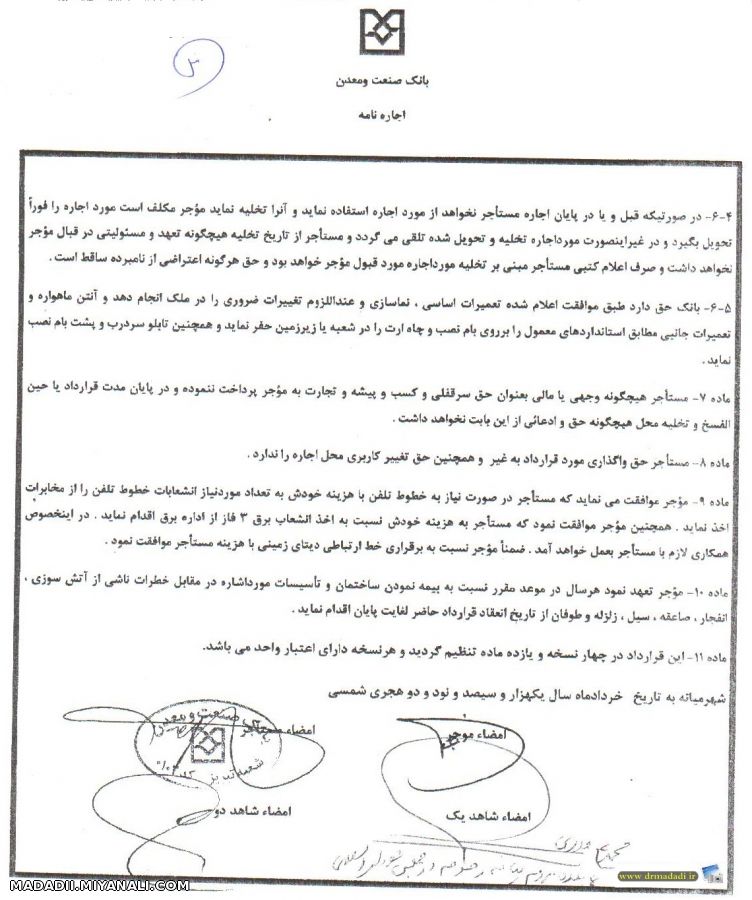 ۲
بانک صنعت ومعدن
اجاره نامه
۶-۴- در صورتیکه قبل و یا در پایان اجاره مستأجر نخواهد از مورد اجاره استفاده نماید و آنرا تخلیه نماید مؤجر مکلف است مورد اجاره را فوراً
تحویل بگیرد و در غیراینصورت مورداجاره تخلیه و تحویل شده تلقی می گردد و مستأجر از تاریخ تخلیه هیچگونه تعهد و مسئولیتی در قبال مؤجر
نخواهد داشت و صرف اعلام کتبی مستأجر مبنی بر تخلیه مورداجاره مورد قبول مؤجر خواهد بود و حق هرگونه اعتراضی از نامبرده ساقط است .
۶-۵- بانک حق دارد طبق موافقت اعلام شده تعمیرات اساسی ، نماسازی و عنداللزوم تغییرات ضروری را در ملک انجام دهد و آنتن ماهواره و
تعمیرات جانبی مطابق استانداردهای معمول را برروی بام نصب و چاه ارت را در شعبه یا زیرزمین حفر نماید و همچنین تابلو سردرب و پشت بام نصب
نماید .
ماده ۷- مستأجر هیچگونه وجهی یا مالی بعنوان حق سرقفلی و کسب و پیشه و تجارت به مؤجر پرداخت ننموده و در پایان مدت قرارداد یا حین
الفسخ و تخلیه محل هیچگونه حق و ادعائی از این بابت نخواهد داشت .
ماده ۸- مستأجر حق واگذاری مورد قرارداد به غیر و همچنین حق تغییر کاربری محل اجاره را ندارد .
ماده ۹- مؤجر موافقت می نماید که مستأجر در صورت نیاز به خطوط تلفن با هزینه خودش به تعداد موردنیاز انشعابات خطوط تلفن را از مخابرات
اخذ نماید . همچنین مؤجر موافقت نمود که مستأجر به هزینه خودش نسبت به اخذ انشعاب برق ۳ فاز از اداره برق اقدام نماید . در اینخصوص
همکاری لازم با مستأجر بعمل خواهد آمد . ضمناً مؤجر نسبت به برقراری خط ارتباطی دیتای زمینی با هزینه مستأجر موافقت نمود .
ماده ۱۰- مؤجر تعهد نمود هرسال در موعد مقرر نسبت به بیمه نمودن ساختمان و تأسیسات مورداشاره در مقابل خطرات ناشی از آتش سوزی ،
انفجار ، صاعقه ، سیل ، زلزله و طوفان از تاریخ انعقاد قرارداد حاضر لغایت پایان اقدام نماید .
ماده ۱۱- این قرارداد در چهار نسخه و یازده ماده تنظیم گردید و هرنسخه دارای اعتبار واحد می باشد.
شهرمیانه به تاریخ خردادماه سال یکهزار و سیصد و نود و دو هجری شمسی
امضاء موجر
امضاء مستأجر
صنعت و معدن
شعبه تبریز
امضاء شاهد یک
امضاء شاهد دو
www.drmadadi.ir
MADADII.MIYANALI.COM